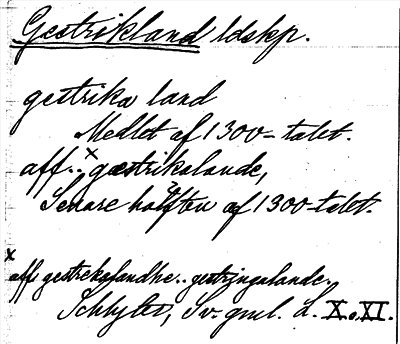 Gestrikland ldskp.
gestrika land
Medlet af 1300-talet.
aff..ˣgæstrikalande,
Senare hälften af 1300-talet.
ˣ aff gestrekalandhe.. gestringalande.
Schlyter, Sv. gml. L. X o. XI.